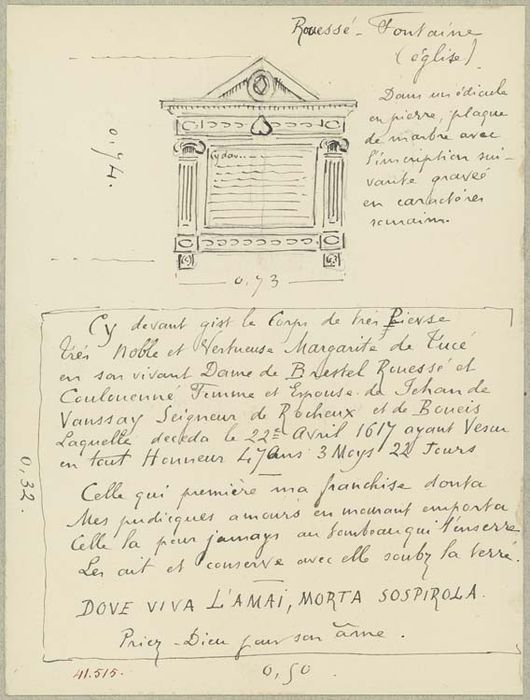 Rouessé-Fontaine
(église)
Dans un édicule
en pierre, plaque
de marbre avec
l'inscription sui-
vante gravée
en caractères
romains.
0,74.
Cy dav...
0,73
Cy devant gist le Corps de très Pieuse
très Noble et Vertueuse Margarite de Tucé
en son vivant Dame de Brestel Rouessé et
Coulouenné Femme et Espouse de Jehan de
Vanssay Seigneur de Rocheux et de Boueis
Laquelle deceda le 22e Avril 1617 ayant Vescu
en tout Honneur 47 ans 3 Moys 22 Jours
0,32.
Celle qui première ma franchise donta
Mes pudicques amours en mourant emporta
Celle la pour jamays au tombeau qui l'enserre
Les ait et conserve avec elle soubz la terre.
DOVE VIVA L'AMAI, MORTA SOSPIROLA.
Priez Dieu pour son âme.
41.515.
0,50